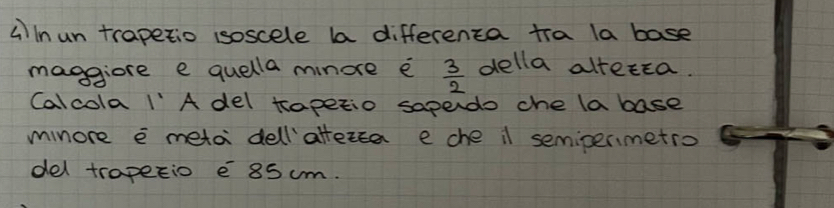 4) In un trapezio isoscele la differenza tra la base
maggiore e quella minore é 3/2 della altezza.
Calcola l' A del trapezio sapendo che la base
minore é metà dell'altezza e che il semiperimetro
del trapezio é 85 cm.